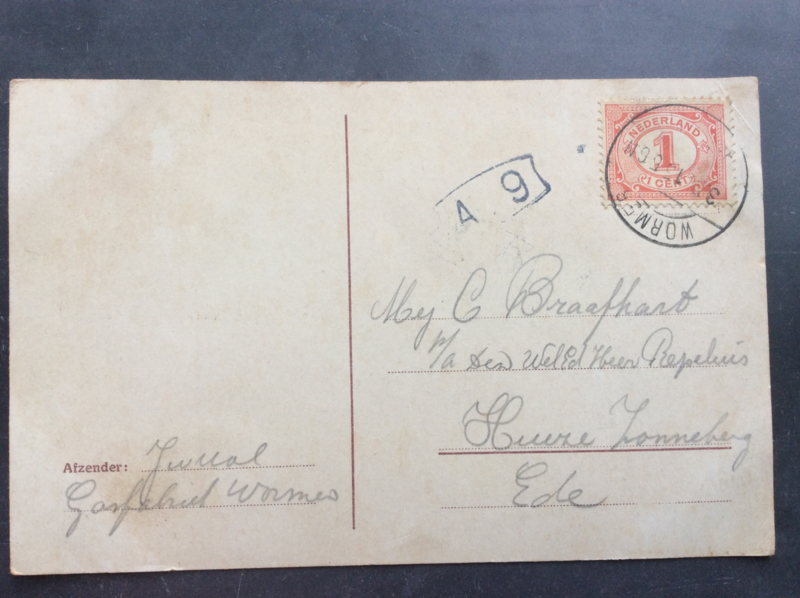 NEDERLAND
1
1 CENT
WORMER
A 9
Mej C Braafhart
p/a den WelEd Heer Repelius
Huize Zonneberg
Ede
Afzender:
Gasfabriek Wormer